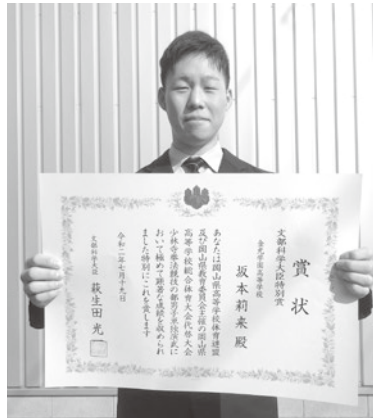 賞状
文部科学大臣特別賞
金光学園高等学校
坂本莉来 殿
あなたは岡山県高等学校体育連盟
及び岡山県教育委員会主催の岡山県
高等学校総合体育大会代替大会
少林寺拳法競技の部男子単独演武に
おいて極めて顕著な成績を収められ
ました特別にこれを賞します
令和二年七月十九日
文部科学大臣 萩生田光一